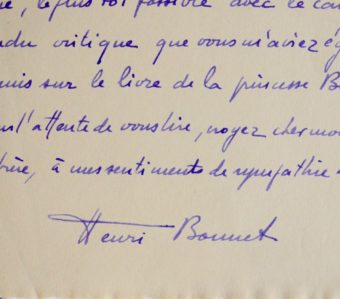 le plus tôt possible avec le com
ndu critique que vous m'aviez ég
mis sur le livre de la princesse B
ns l'attente de vous lire, voyez cher mon
frère, à mes sentiments de sympathie
Henri Bonnet